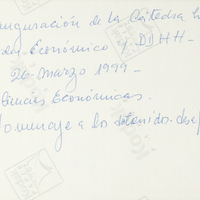 auguración de la Cátedra l
den Económico y DDHH-
26 marzo 1999-
iencias Económicas.
omenaje a los detenidos desap